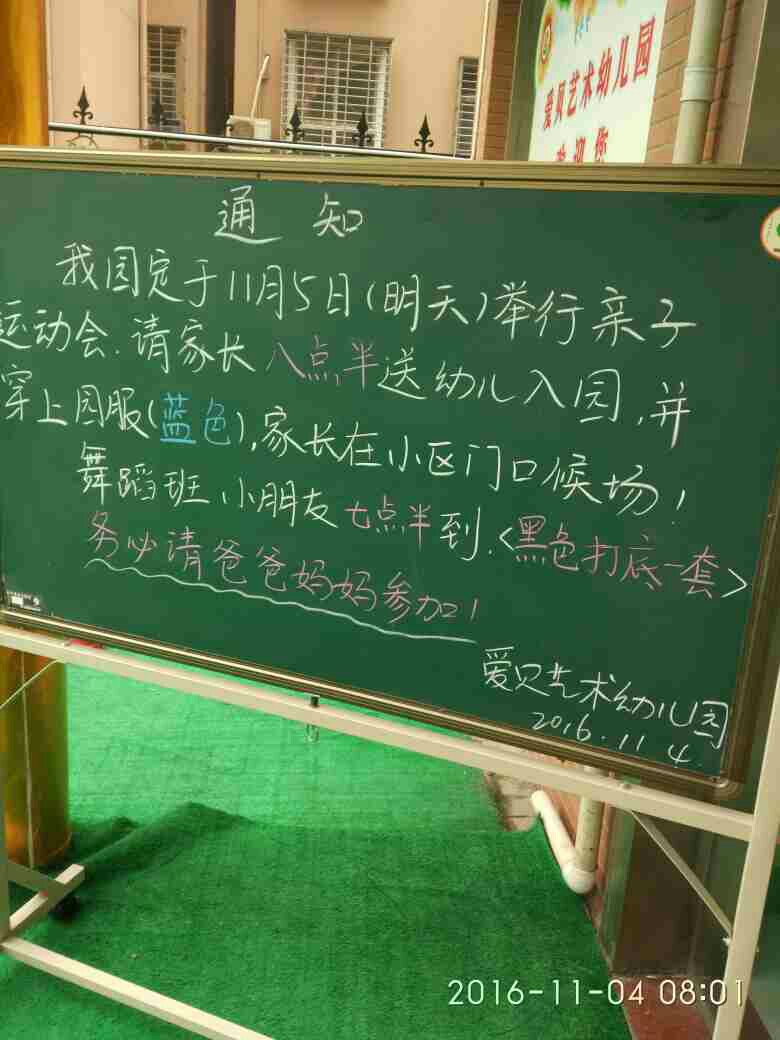 爱贝艺术幼儿园
欢迎您
通知
我园定于11月5日(明天)举行亲子
运动会.请家长八点半送幼儿入园,并
穿上园服(蓝色),家长在小区门口候场!
舞蹈班小朋友七点半到.<黑色打底一套>
务必请爸爸妈妈参加!
爱贝艺术幼儿园
2016.11.4
2016-11-04 08:01